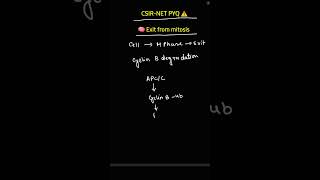 CSIR-NET PYQ ⚠️
🧠 Exit from mitosis
Cell → M Phase → Exit
Cyclin B degradation
APC/C
↓
Cyclin B -ub
↓
ub